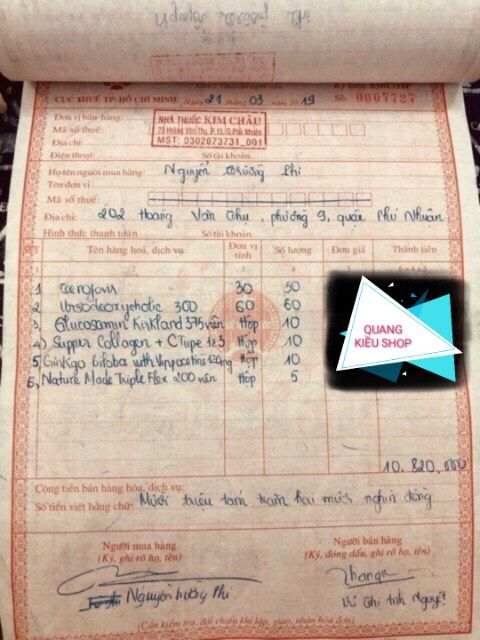 CỤC THUẾ TP. HỒ CHÍ MINH Ngày 21 tháng 03 năm 2019 Số: 0007727
Đơn vị bán hàng:
NHÀ THUỐC KIM CHÂU
Mã số thuế:
MST: 0302673731_001
Địa chỉ:
Điện thoại: Số tài khoản
Họ tên người mua hàng: Nguyễn Phi
Tên đơn vị:
Mã số thuế:
Địa chỉ: 202 Hoàng Văn Thụ, phường 9, quận Phú Nhuận
Hình thức thanh toán Số tài khoản
STT Tên hàng hoá, dịch vụ Đơn vị tính Số lượng Đơn giá Thành tiền
1 30 30
2 Ursodeoxycholic 300 60 60
3 Glucosamin Kirkland 375 viên Hộp 10
4) Supper Collagen + C Type 1 & 3 Hộp 10
5 Ginkgo biloba with Vinpocetine 120mg Hộp 10
6, Nature Made Triple Flex 200 viên Hộp 5
QUANG
KIỀU SHOP
10.820.000
Cộng tiền bán hàng hóa, dịch vụ:
Số tiền viết bằng chữ: Mười triệu tám trăm hai mươi nghìn đồng
Người mua hàng Người bán hàng
(Ký, ghi rõ họ, tên) (Ký, đóng dấu, ghi rõ họ, tên)
Nguyễn Phi Nguyệt
(Cần kiểm tra, đối chiếu khi lập, giao, nhận hóa đơn)